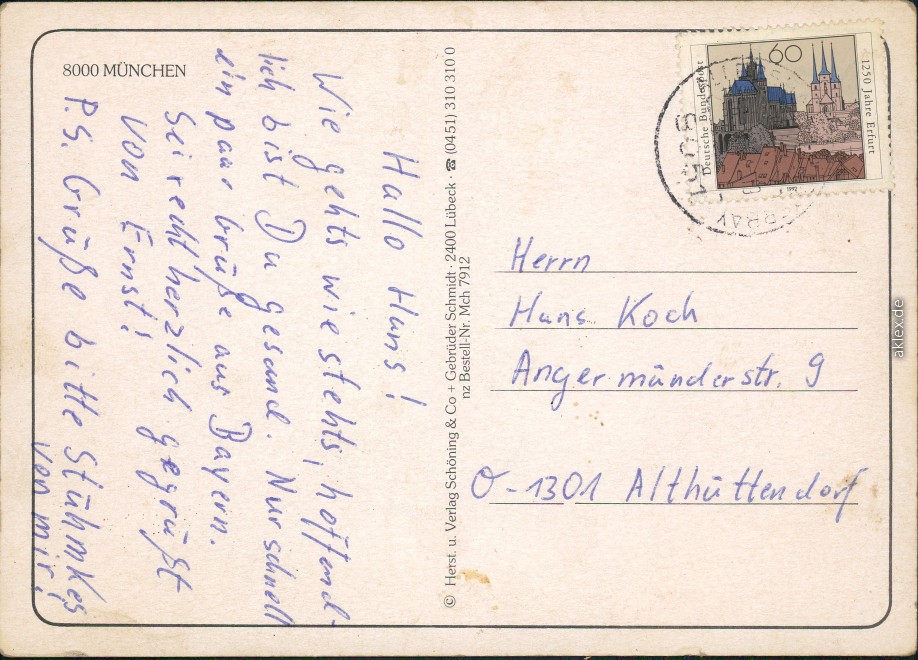 8000 MÜNCHEN
Hallo Hans!
Wie gehts wie stehts, hoffend-
lich bist Du gesund. Nur schnell
ein paar Grüße aus Bayern.
Sei recht herzlich gegrüßt
von Ernst!
P.S. Grüße bitte Stühmkes
von mir!
© Herst. u. Verlag Schöning & Co + Gebrüder Schmidt · 2400 Lübeck · ☎ (0451) 310 310 0
nz Bestell-Nr. Mch 7912
60
Deutsche Bundespost
1250 Jahre Erfurt
1992
Herrn
Hans Koch
Angermünderstr. 9
O-1301 Althüttendorf
aklex.de